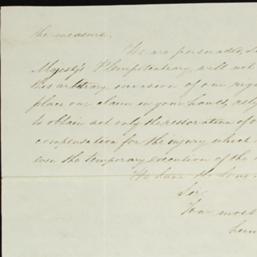 the measure.
We are persuaded,
Majesty's Plenipotentiary will not
this arbitrary invasion of our
place our claim in your hands, rely
to obtain not only the restoration of
compensation for the injury which
even the temporary execution of the
We have the
Sir,
Your most